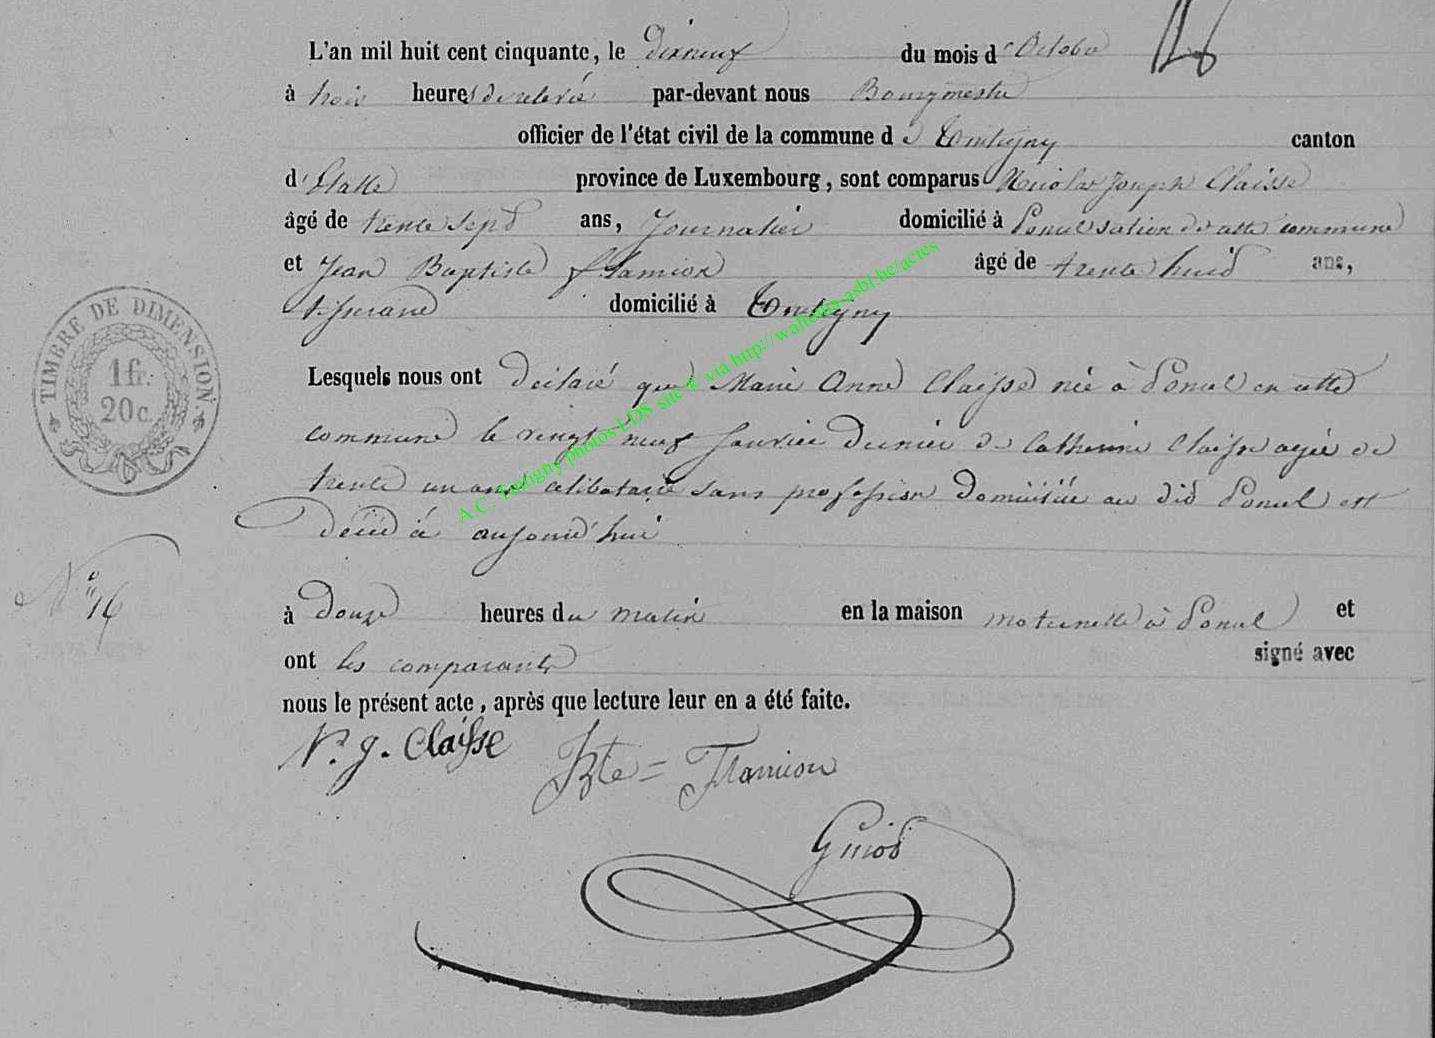 L'an mil huit cent cinquante, le dixneuf du mois d'Octobre
à trois heures de relevée par-devant nous Bourgmestre
officier de l'état civil de la commune de Tintigny canton
d'Etalle province de Luxembourg, sont comparus Nicolas Joseph Claisse
âgé de trente sept ans, Journalier domicilié à Poncel section de cette commune
et Jean Baptiste Flamion âgé de trente huit ans,
tisserand domicilié à Tintigny
Lesquels nous ont déclaré que Marie Anne Claisse née à Poncel en cette
commune le vingt neuf Janvier dernier de Catherine Claisse agée de
trente un ans célibataire sans profession domiciliée au dit Poncel est
décédée aujourd'hui
N° 16
à douze heures du matin en la maison maternelle à Poncel et
ont les comparants signé avec
nous le présent acte, après que lecture leur en a été faite.
N. J. Claisse JBte = Flamion
Guiot
TIMBRE DE DIMENSION
1 fr.
20 c.
A.C. Tintigny photos LDS site @ via http://wallonia-asbl.be/actes